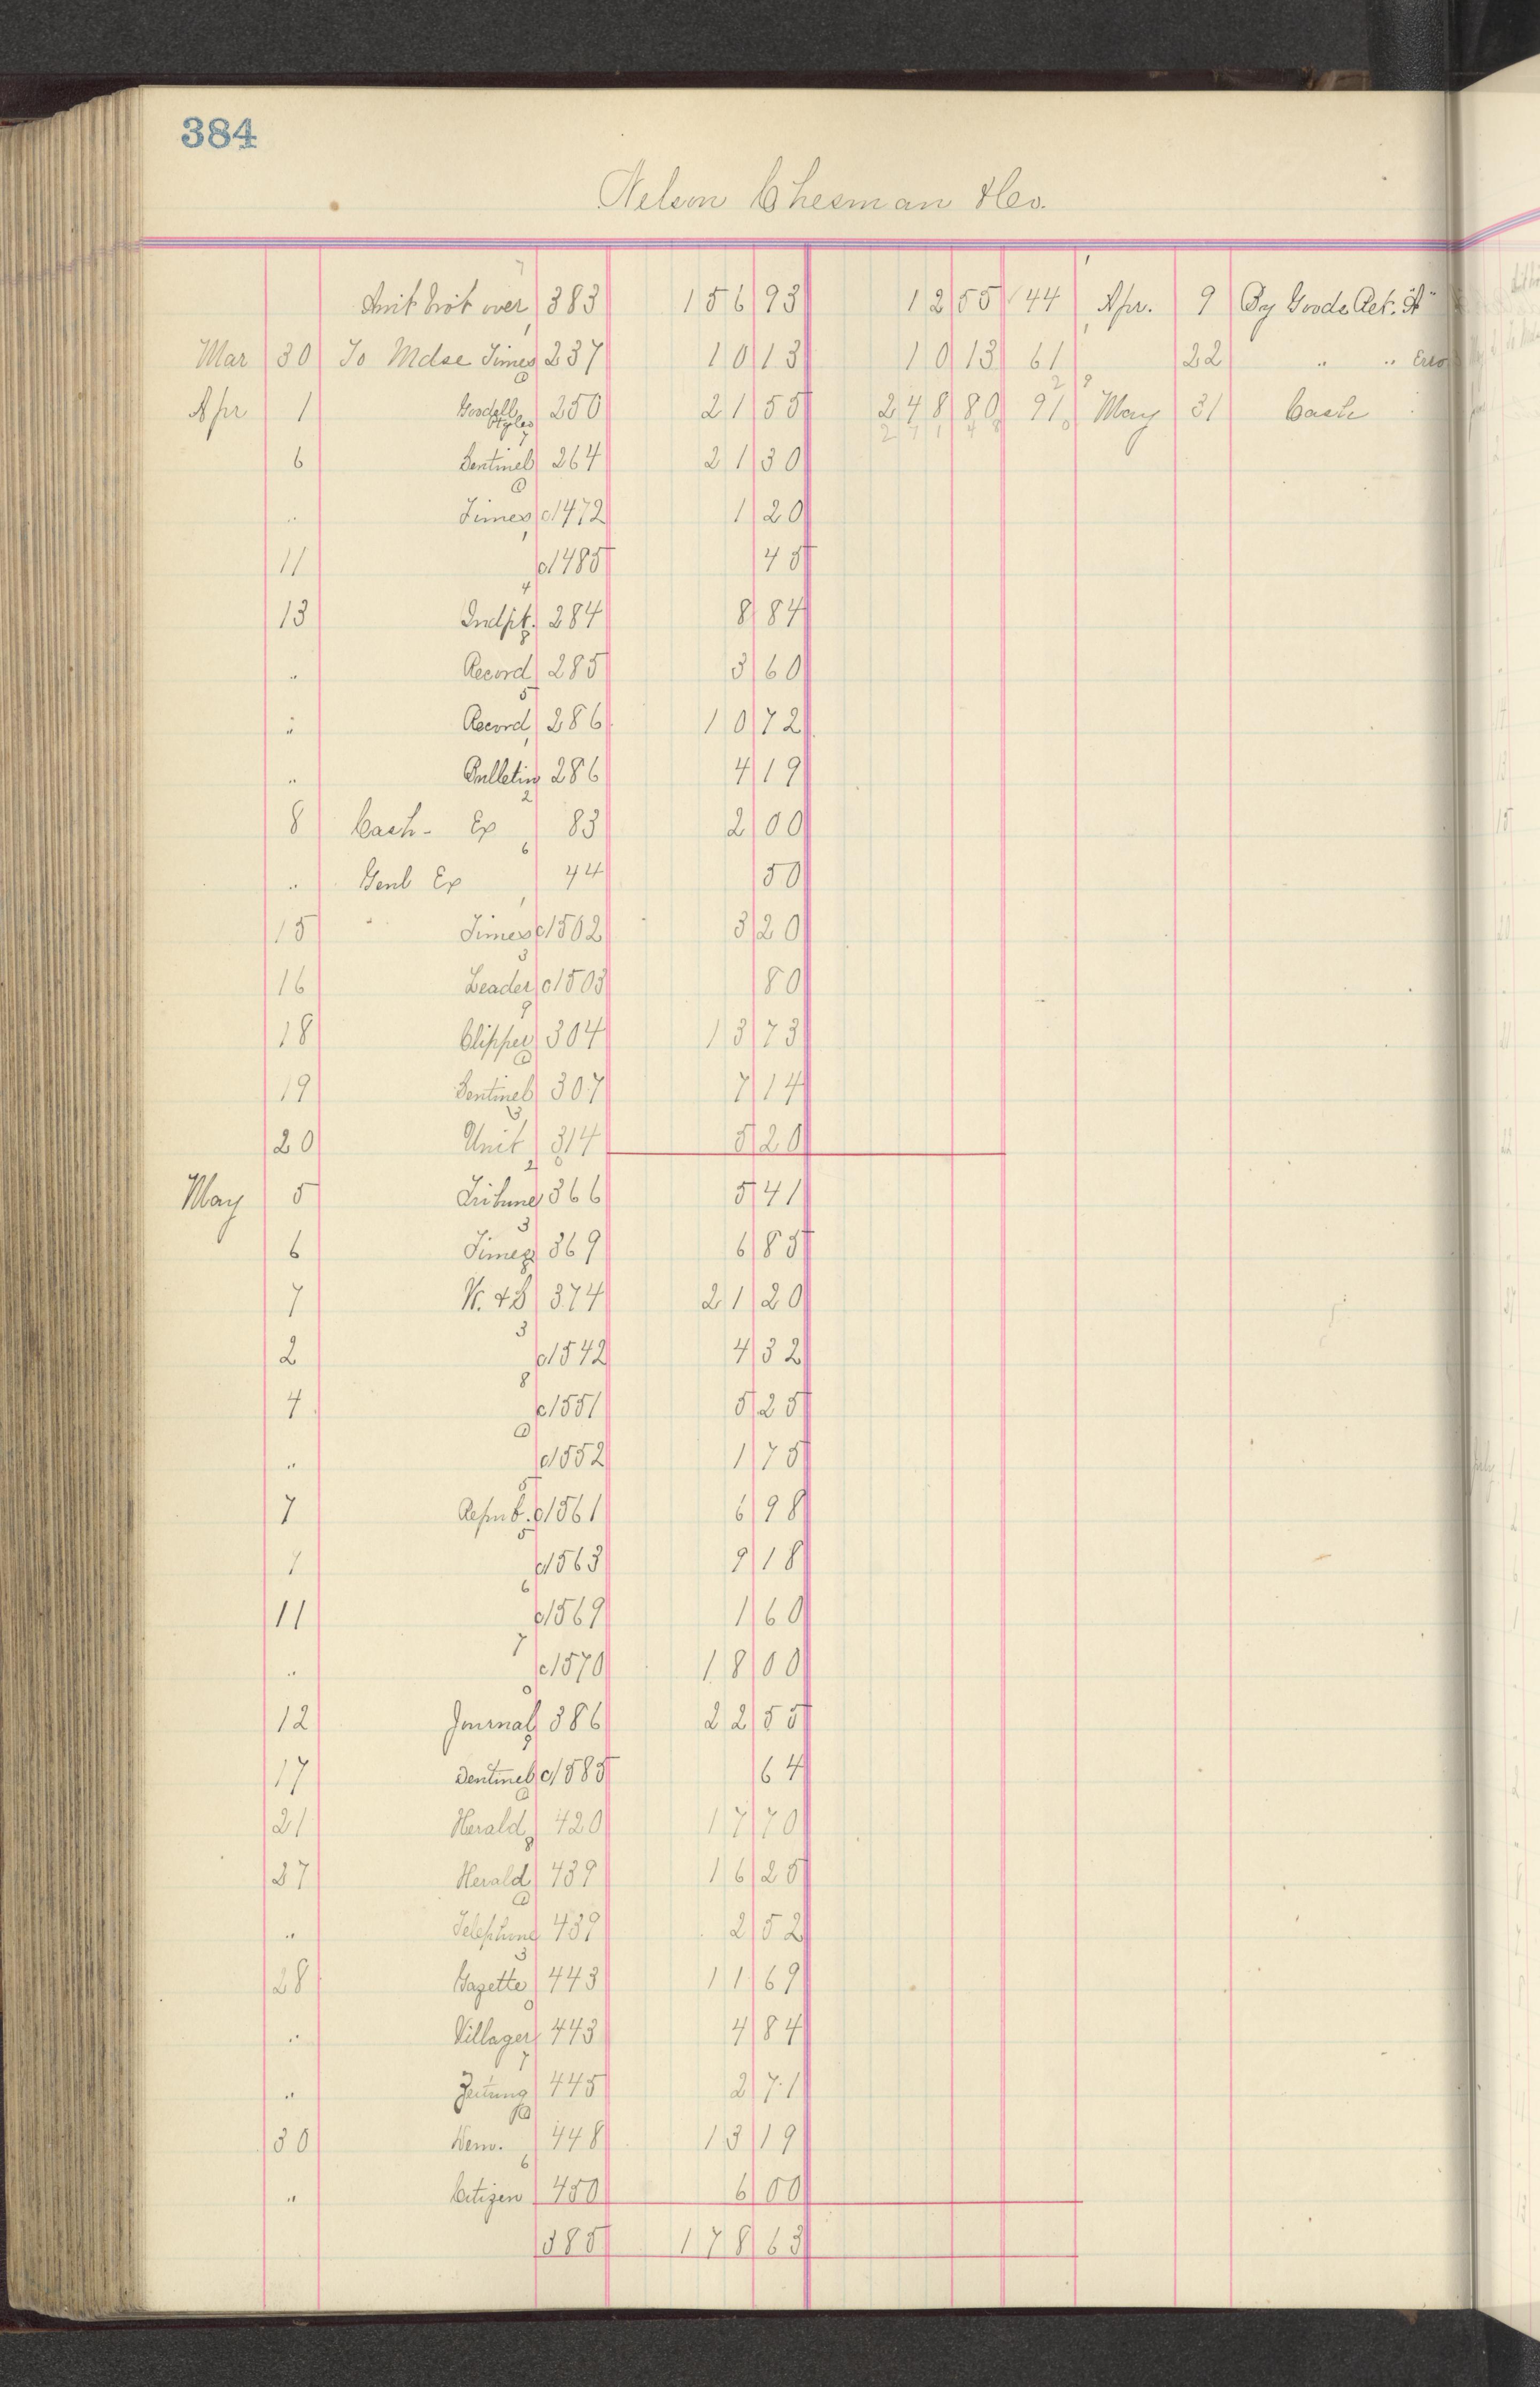 384
Nelson Chesman & Co.
Amt brot over 383 156 93 12 55 44 Apr. 9 By Goods Ret. "A"
Mar 30 To Mdse Times 237 10 13 10 13 61 22 " " Erro
Apr 1 250 21 55 248 80 91 May 31 Cash
6 Sentinel 264 21 30
" Times c1472 1 20
11 c1485 45
13 Indpt. 284 8 84
" Record 285 3 60
" Record 286 10 72
" Bulletin 286 4 19
8 Cash - Ex 83 2 00
" Genl Ex 44 50
15 " Times c1502 3 20
16 Leader c1503 80
18 Clipper 304 13 73
19 Sentinel 307 7 14
20 Unit 314 5 20
May 5 Tribune 366 5 41
6 Times 369 6 85
7 W. & S 374 21 20
2 c1542 4 32
4 c1551 5 25
" c1552 1 75
7 Repub. c1561 6 98
7 c1563 9 18
11 c1569 1 60
" c1570 18 00
12 Journal 386 22 55
17 Sentinel c1585 64
21 Herald 420 17 70
27 Herald 439 16 25
" Telephone 439 2 52
28 Gazette 443 11 69
" Villager 443 4 84
" Zeitung 445 2 71
30 Dem. 448 13 19
" Citizen 450 6 00
385 178 63